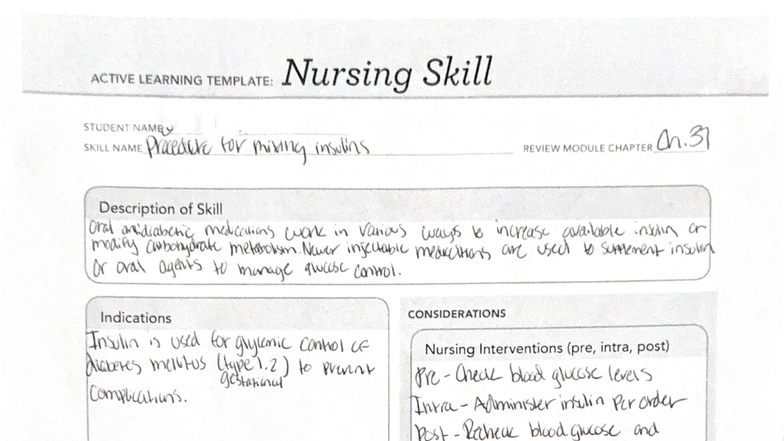 ACTIVE LEARNING TEMPLATE: Nursing Skill
STUDENT NAME
SKILL NAME Procedure for mixing insulins
REVIEW MODULE CHAPTER Ch.37
Description of Skill
Oral antidiabetic medications work in various ways to increase available insulin or
modify carbohydrate metabolism. Newer injectable medications are used to supplement insulin
or oral agents to manage glucose control.
Indications
Insulin is used for glycemic control of
diabetes mellitus (type 1.2) to prevent
gestational
complications.
CONSIDERATIONS
Nursing Interventions (pre, intra, post)
Pre - Check blood glucose levels
Intra - Administer insulin per order
Post - Recheck blood glucose and